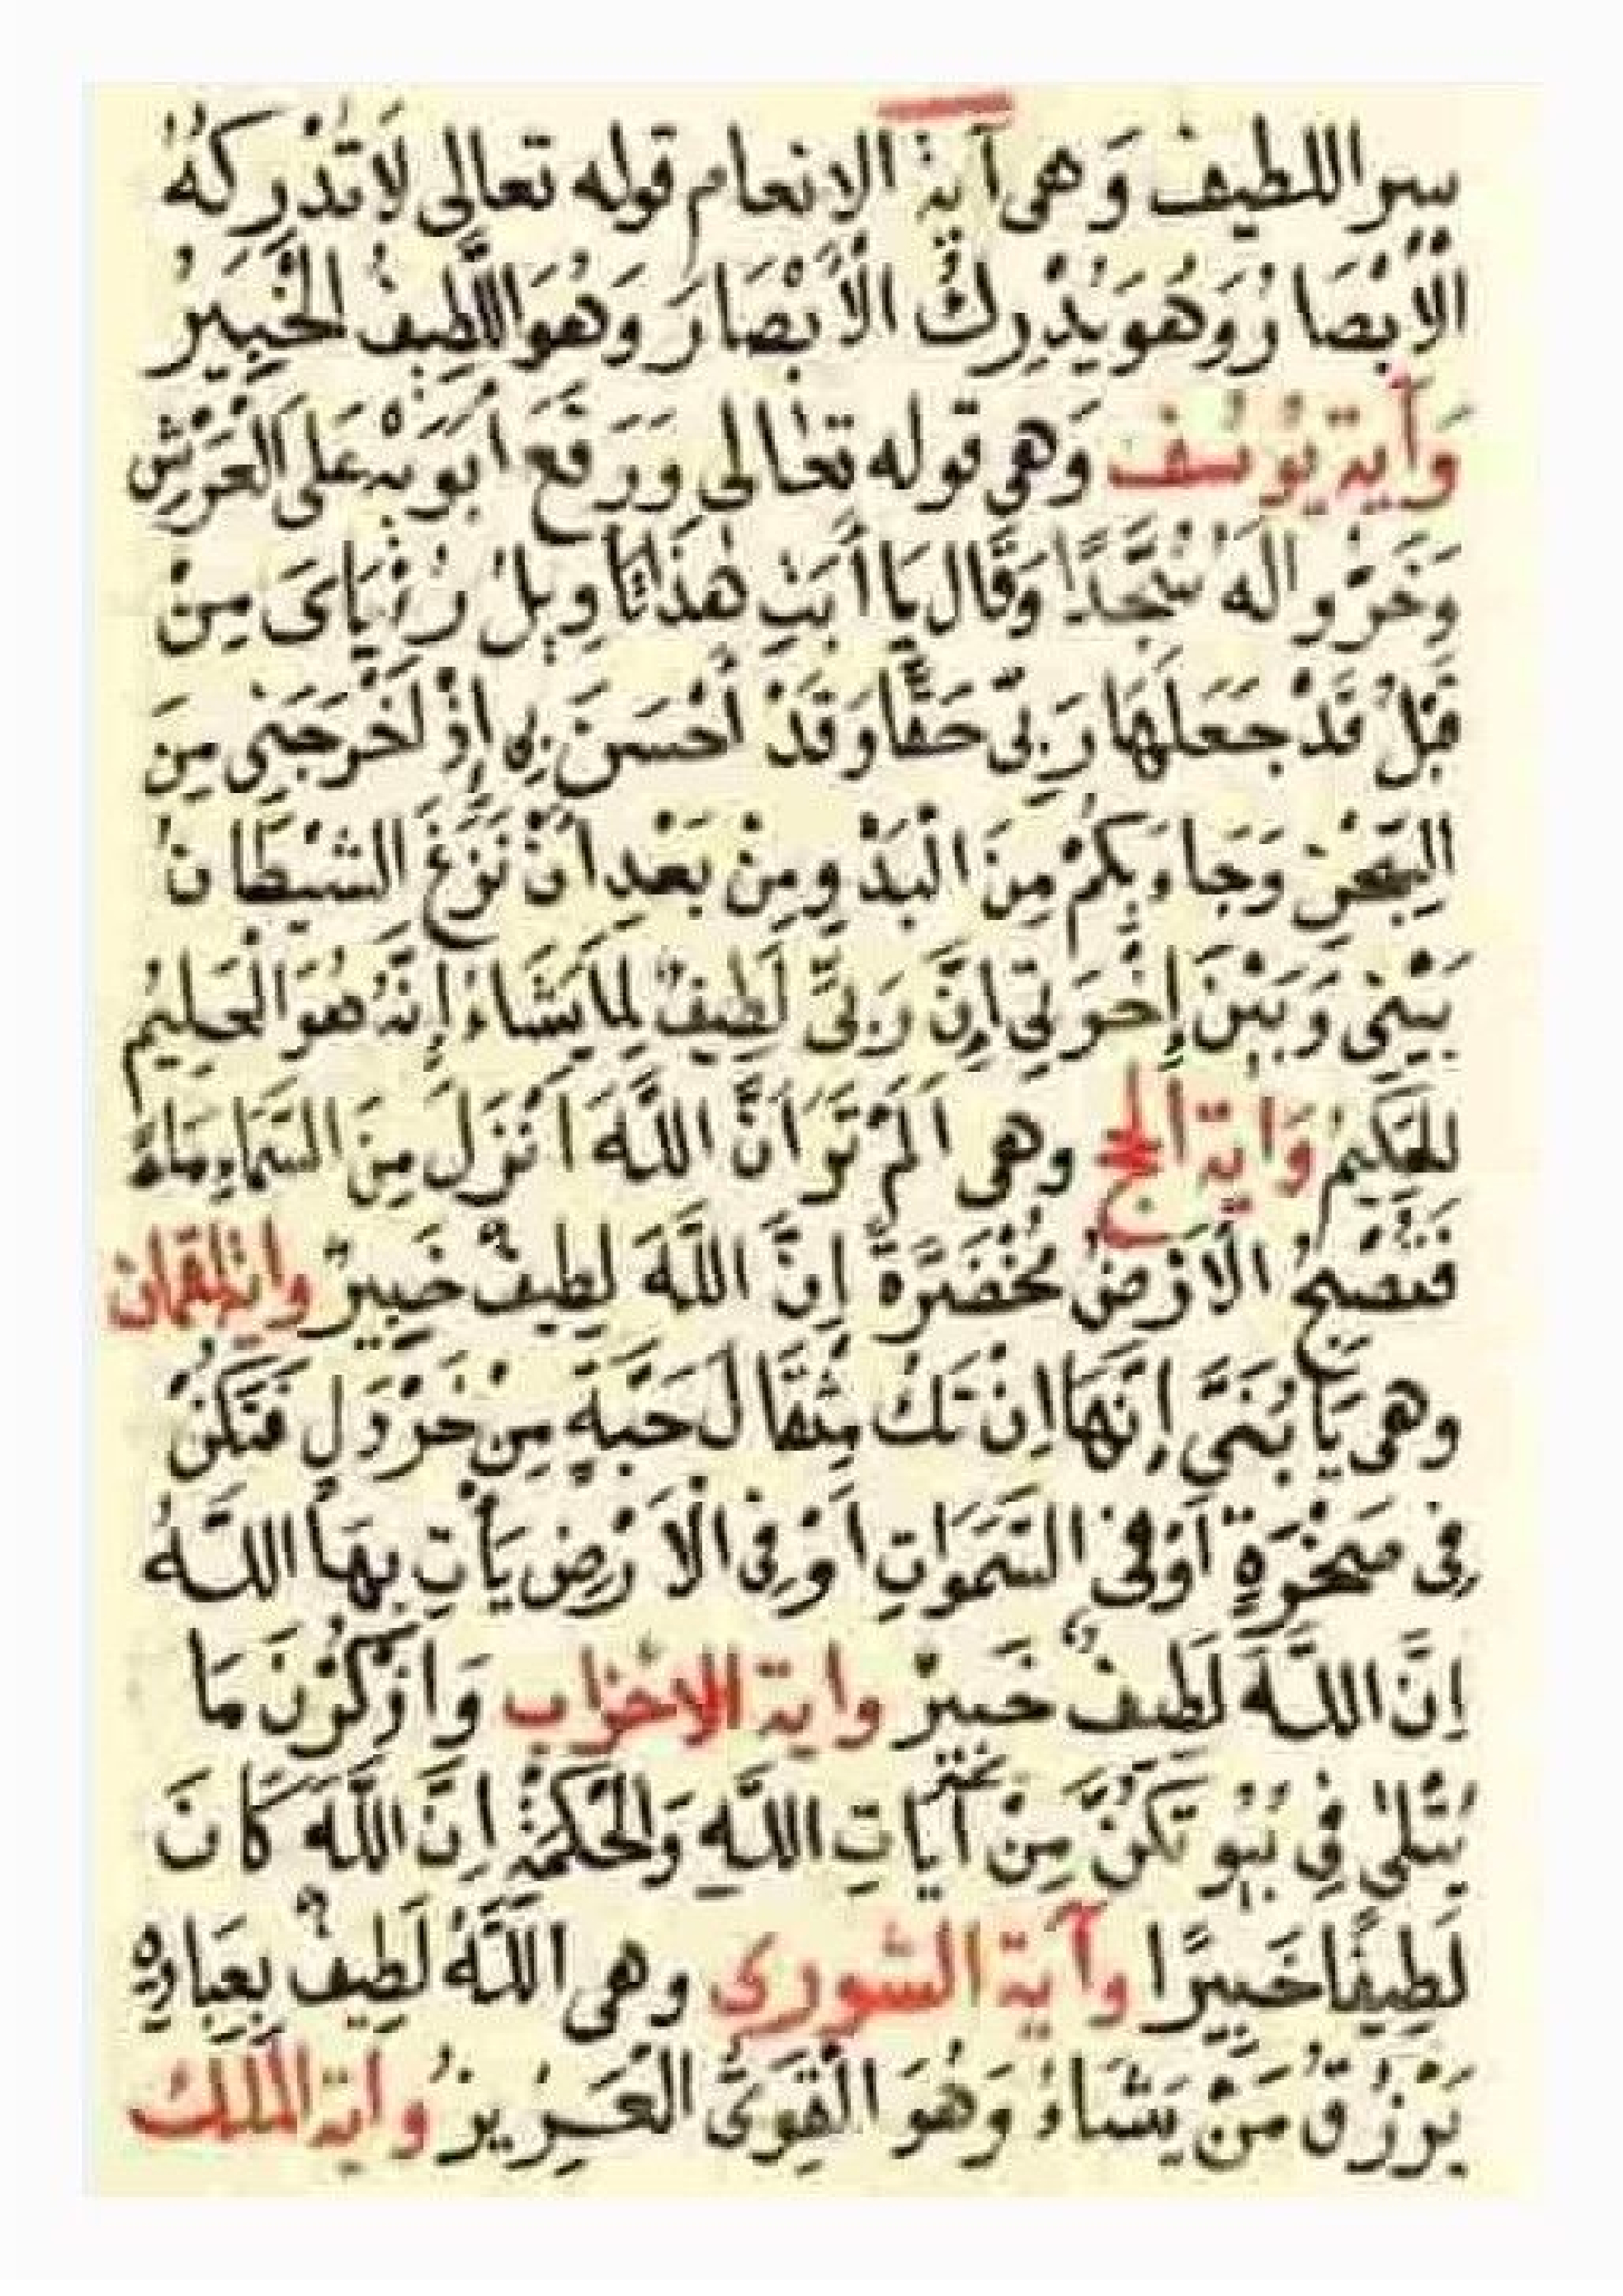 سر اللطيف وَهى آية الانعام قوله تعالى لَا تُدْرِكُهُ
الْأَبْصَارُ وَهُوَ يُدْرِكُ الْأَبْصَارَ وَهُوَ اللَّطِيفُ الْخَبِيرُ
وَآيَة يُوسُف وَهى قوله تعالى وَرَفَعَ أَبَوَيْهِ عَلَى الْعَرْشِ
وَخَرُّوا لَهُ سُجَّدًا وَقَالَ يَا أَبَتِ هٰذَا تَاوِيلُ رُءْيَاىَ مِنْ
قَبْلُ قَدْ جَعَلَهَا رَبِّى حَقًّا وَقَدْ أَحْسَنَ بِى إِذْ أَخْرَجَنِى مِنَ
السِّجْنِ وَجَاءَ بِكُمْ مِنَ الْبَدْوِ مِنْ بَعْدِ أَنْ نَزَغَ الشَّيْطَانُ
بَيْنِى وَبَيْنَ إِخْوَتِى إِنَّ رَبِّى لَطِيفٌ لِمَا يَشَاءُ إِنَّهُ هُوَ الْعَلِيمُ
الْحَكِيمُ وَاية الحج وهى اَلَمْ تَرَ اَنَّ اللَّهَ اَنْزَلَ مِنَ السَّمَاءِ مَاءً
فَتُصْبِحُ الْاَرْضُ مُخْضَرَّةً إِنَّ اللَّهَ لَطِيفٌ خَبِيرٌ واية لقمان
وهى يَا بُنَىَّ إِنَّهَا اِنْ تَكُ مِثْقَالَ حَبَّةٍ مِنْ خَرْدَلٍ فَتَكُنْ
فِى صَخْرَةٍ أَوْ فِى السَّمٰوَاتِ اَوْ فِى الْاَرْضِ يَأْتِ بِهَا اللَّهُ
اِنَّ اللَّهَ لَطِيفٌ خَبِيرٌ واية الاحزاب وَاذْكُرْنَ مَا
يُتْلٰى فِى بُيُوتِكُنَّ مِنْ آيَاتِ اللَّهِ وَالْحِكْمَةِ اِنَّ اللَّهَ كَانَ
لَطِيفًا خَبِيرًا وآية الشورى وهى اللَّهُ لَطِيفٌ بِعِبَادِهِ
يَرْزُقُ مَنْ يَشَاءُ وَهُوَ الْقَوِىُّ الْعَزِيزُ واية الملك